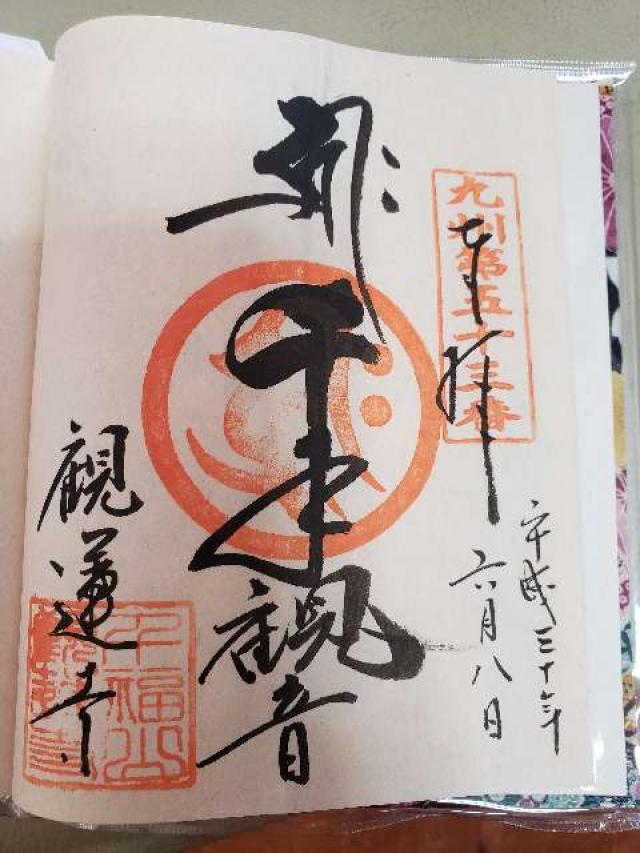 九州第五十三番
奉拝
平成三十年
六月八日
千手観音
觀蓮寺
千福山